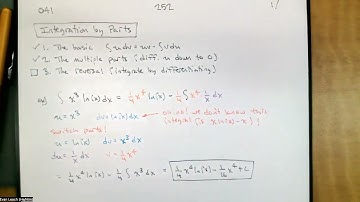 041 252 1/
Integration by Parts
✓ 1. The basic ∫u dv = uv - ∫v du
✓ 2. The multiple parts (diff. u down to 0)
□ 3. The reversal (integrate by differentiating)
ex) ∫ x³ ln(x) dx = 1/4 x⁴ ln(x) - 1/4 ∫ x⁴ · 1/x dx
u = x³ dv = ln(x) dx ← oh no! we don't know this
integral (is x ln(x) - x)!
switch parts!
u = ln(x) dv = x³ dx
du = 1/x dx v = 1/4 x⁴
= 1/4 x⁴ ln(x) - 1/4 ∫ x³ dx = 1/4 x⁴ ln(x) - 1/16 x⁴ + C